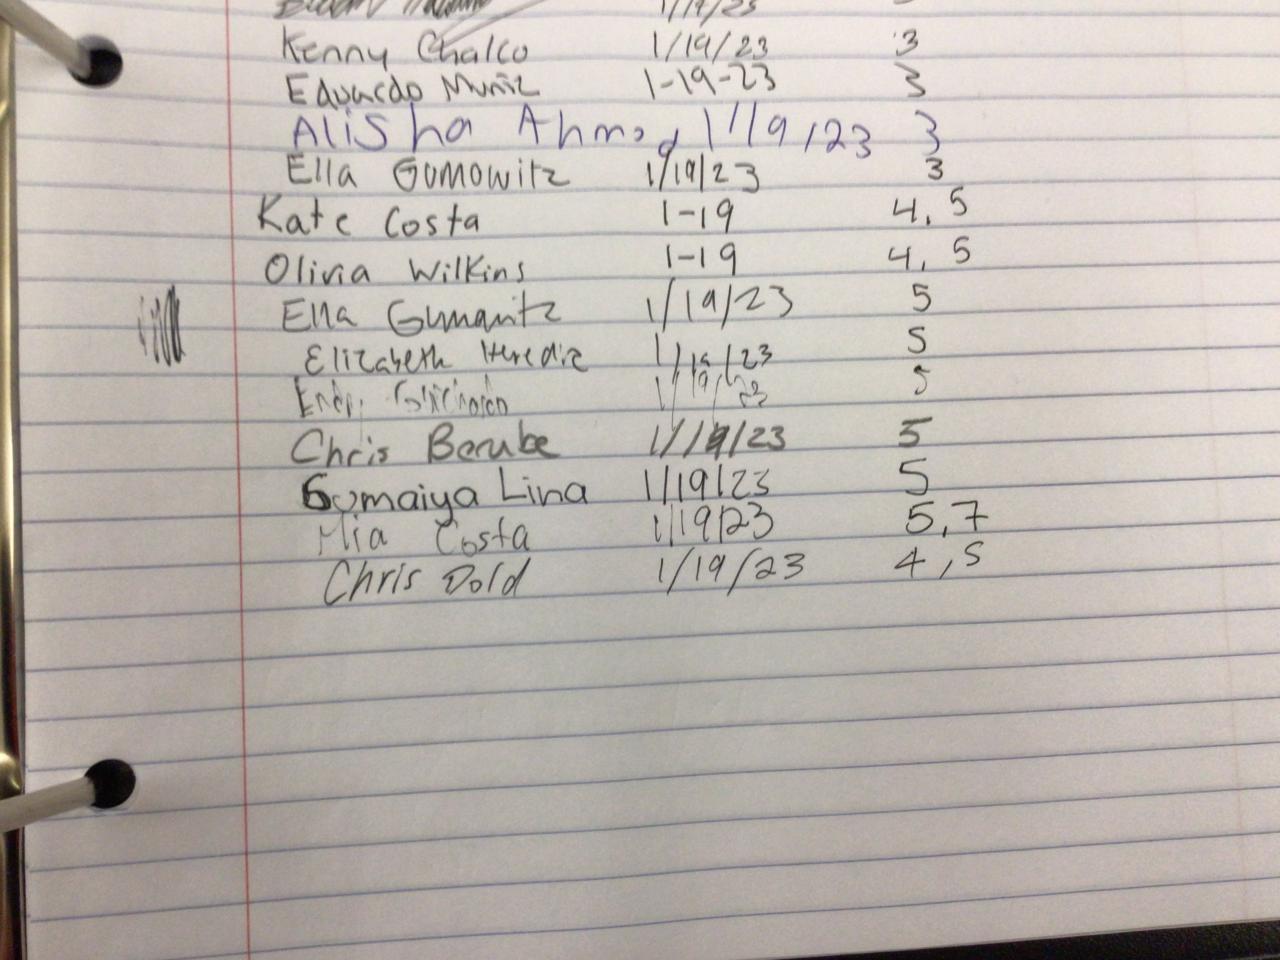 Kenny Chalco 1/19/23 3
Eduardo Muñiz 1-19-23 3
Alisha Ahmad 1/19/23 3
Ella Gumowitz 1/19/23 3
Kate Costa 1-19 4, 5
Olivia Wilkins 1-19 4, 5
Ella Gumowitz 1/19/23 5
Elizabeth Heredia 1/19/23 5
1/19/23 5
Chris Berube 1/19/23 5
Sumaiya Lina 1/19/23 5
Mia Costa 1/19/23 5,7
Chris Dold 1/19/23 4,5